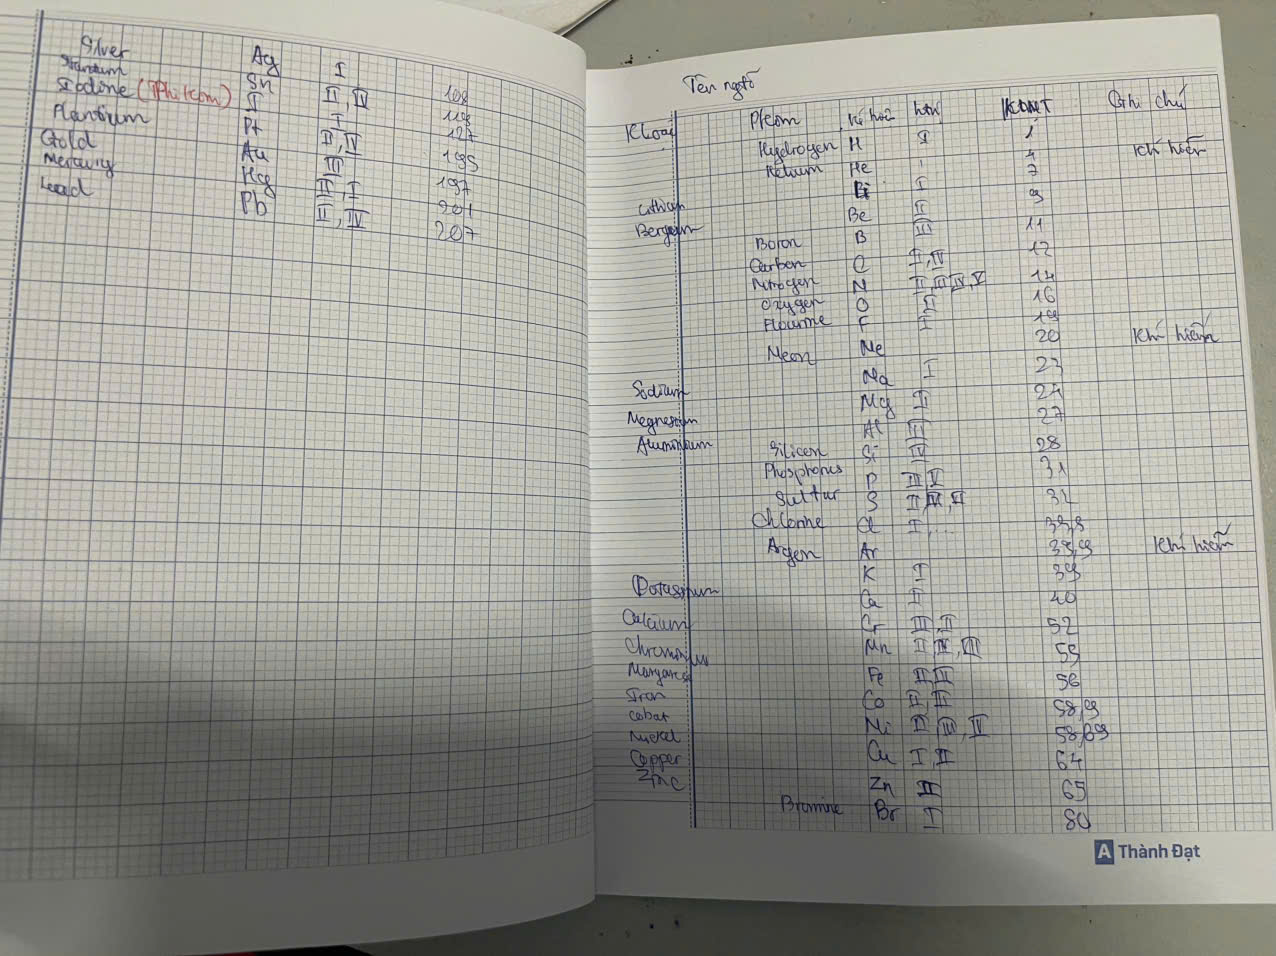 Silver Ag I 108
Sn II, IV 119
Iodine (Phi kim) I I 127
Plantium Pt II, IV 195
Gold Au III 197
Mercury Hg II, I 201
Lead Pb II, IV 207
Tên ngtố
Kloại Pkim kí hóa htrị KLNT Ghi chú
Hydrogen H I 1
Helium He - 4 Khí hiếm
Lithium Li I 7
Be II 9
Boron B III 11
Carbon C II, IV 12
Nitrogen N II, III, IV, V 14
Oxygen O II 16
Flourine F I 19
Neon Ne 20 Khí hiếm
Sodium Na I 23
Megnesium Mg II 24
Aluminium Al III 27
Silicon Si IV 28
Phosphorus P III V 31
Sulfur S II, IV, VI 32
Chlorine Cl I, ... 35,5
Argen Ar 39,9 Khí hiếm
Potassium K I 39
Calcium Ca II 40
Chromium Cr III, II 52
Manganese Mn II IV, VII 55
Iron Fe II III 56
Cobat Co II, III 58,9
Nickel Ni II 58,69
Copper Cu I, II 64
Zinc Zn II 65
Bromine Br I 80
A Thành Đạt